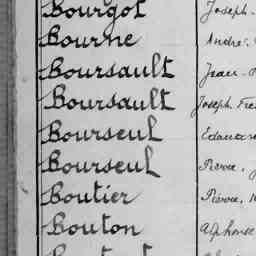 Bourgot Joseph
Bourne André
Boursault Jean
Boursault Joseph
Bourseul Edouard
Bourseul Pierre, J
Boutier Pierre,
Bouton Alphonse